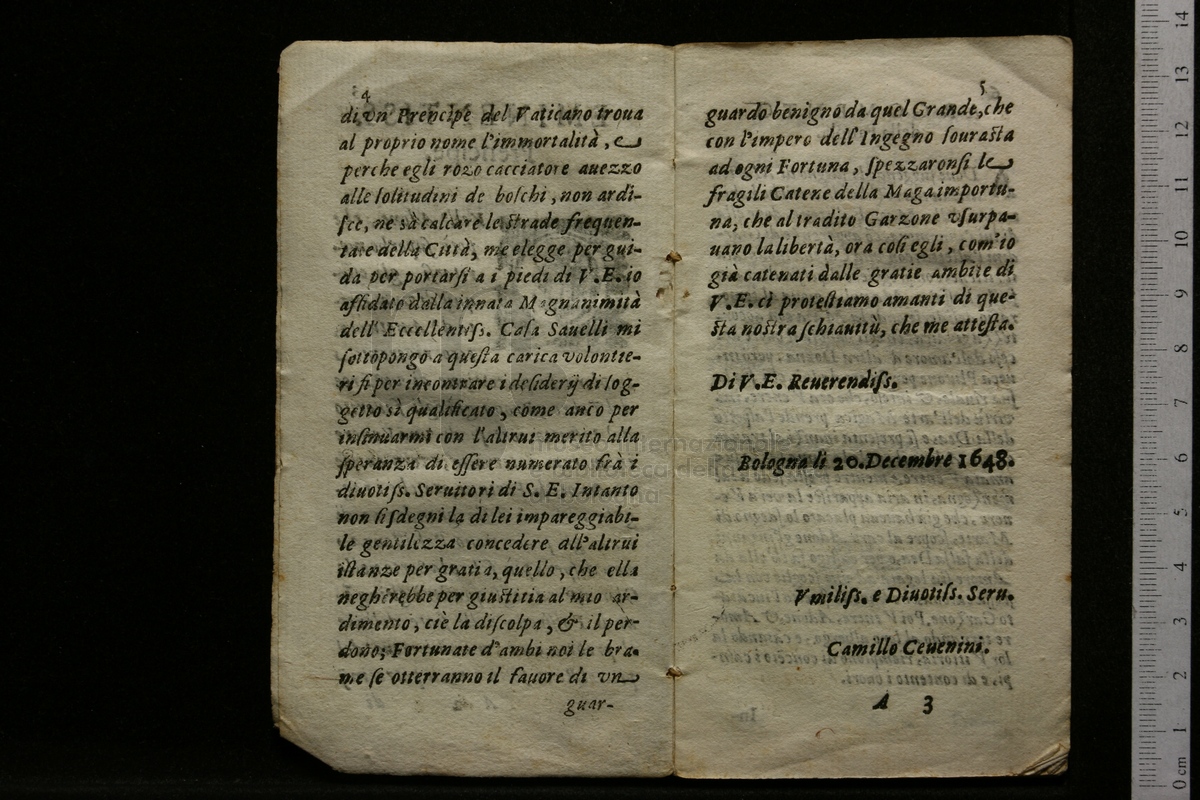 4
di vn Prencipe del Vaticano troua
al proprio nome l'immortalità, e
perche egli rozo cacciatore auezzo
alle solitudini de boschi, non ardi-
sce, ne sà calcare le strade frequen-
tate della Città, me elegge per gui-
da per portarsi a i piedi di V.E. io
affidato dalla innata Magnanimità
dell' Eccellentiss. Casa Sauelli mi
sottopongo a questa carica volontie-
ri si per incontrare i desiderij di sog-
getto sì qualificato, come anco per
insinuarmi con l'altrui merito alla
speranza di essere numerato frà i
diuotiss. Seruitori di S. E. Intanto
non si sdegni la di lei impareggiabi-
le gentilezza concedere all'altrui
istanze per gratia, quello, che ella
negherebbe per giustitia al mio ar-
dimento, ciè la discolpa, & il per-
dono; Fortunate d'ambi noi le bra-
me se otterranno il fauore di vn
guar-
5
guardo benigno da quel Grande, che
con l'impero dell'Ingegno sourasta
ad ogni Fortuna, spezzaronsi le
fragili Catene della Maga importu-
na, che al tradito Garzone vsurpa-
uano la libertà, ora così egli, com'io
già catenati dalle gratie ambite di
V.E. ci protestiamo amanti di que-
sta nostra schiauitù, che me attesta.
Di V.E. Reuerendiss.
Bologna li 20. Decembre 1648.
Vmiliss. e Diuotiss. Seru.
Camillo Ceuenini.
A 3